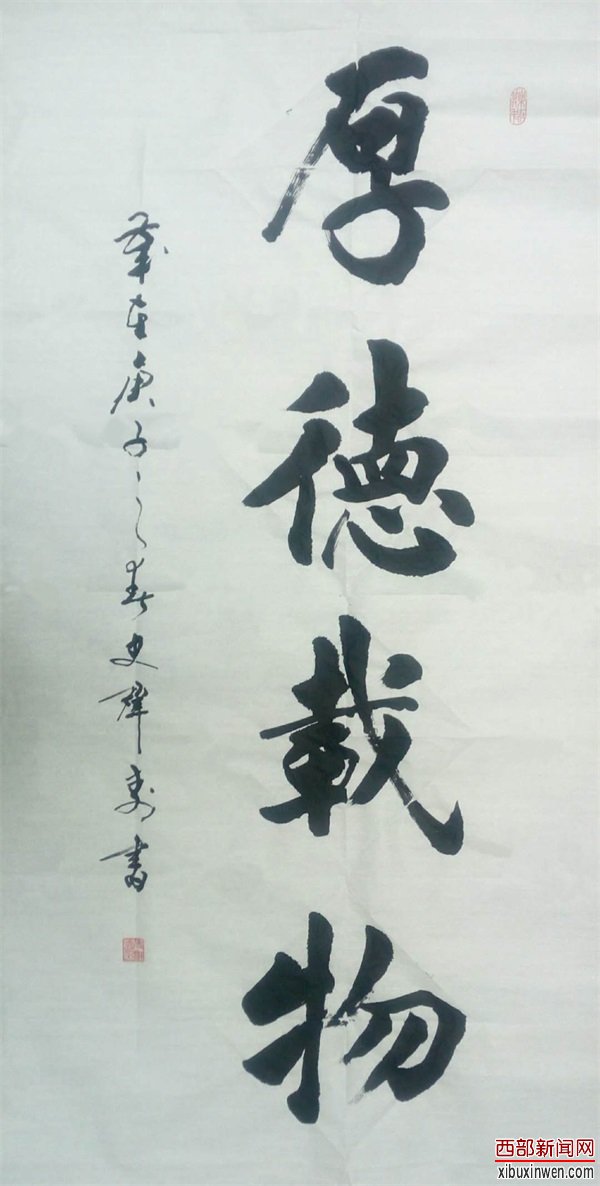 厚德载物
歲在庚子之春史耀秀書
西部新闻网
xibuxinwen.com